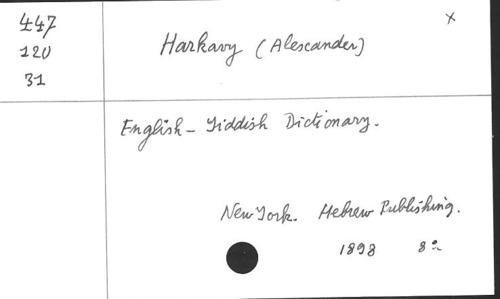 447
120
31
Harkavy (Alexander)
x
English - Yiddish Dictionary.
New York. Hebrew Publishing.
1898 8°